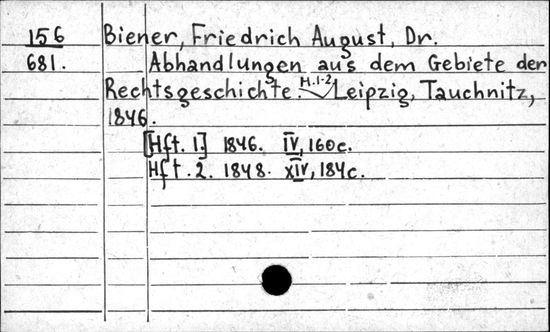 156 Biener, Friedrich August, Dr.
681. Abhandlungen aus dem Gebiete der
Rechtsgeschichte. H.1-2. Leipzig, Tauchnitz,
1846.
[Hft. 1.] 1846. IV, 160c.
Hft. 2. 1848. XIV, 184c.